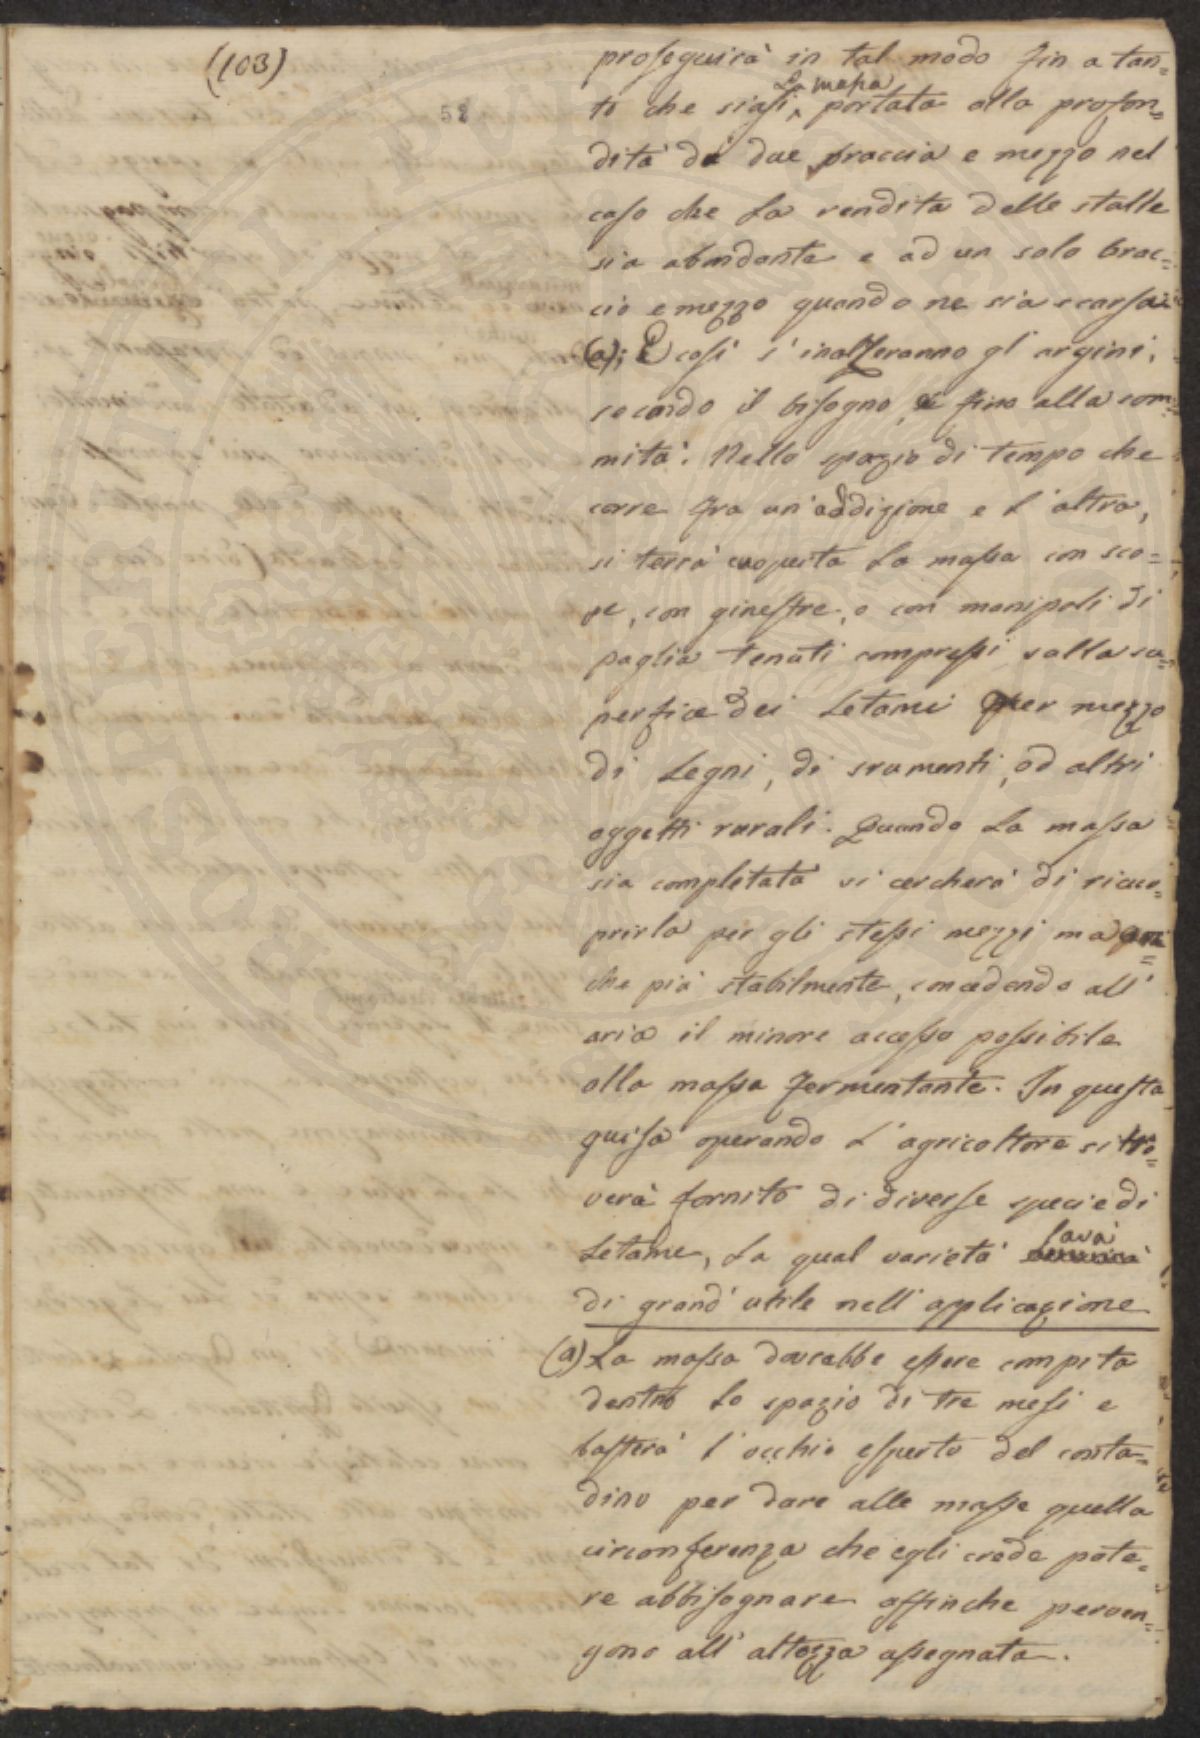 (103)
58
proseguirà in tal modo fin a tan=
to che siasi la massa portata alla profon=
dità di due braccia e mezzo nel
caso che la rendita delle stalle
sia abondante e ad un solo brac=
cio e mezzo quando ne sia scarsa
(a); E così s'inalzeranno gl'argini,
secondo il bisogno, fino alla som=
mità. Nello spazio di tempo che
corre fra un'addizione e l'altra,
si terrà coperta la massa con sco=
pe, con ginestre, o con manipoli di
paglia tenuti compressi sulla su=
perficie dei letami per mezzo
di legni, di sramenti, od altri
oggetti rurali. Quando la massa
sia completata si cercherà di ricuo=
prirla per gli stessi mezzi ma an=
che più stabilmente, concedendo all'
aria il minore accesso possibile
alla massa fermentante. In questa
guisa operando l'agricoltore si tro=
verà fornito di diverse specie di
letame, la qual varietà sarà
di grand'utile nell'applicazione
(a) La massa dovrebbe essere compita
dentro lo spazio di tre mesi e
basterà l'occhio esperto del conta=
dino per dare alle masse quella
circonferenza che egli crede pote=
re abbisognare affinche perven=
gono all'altezza assegnata.